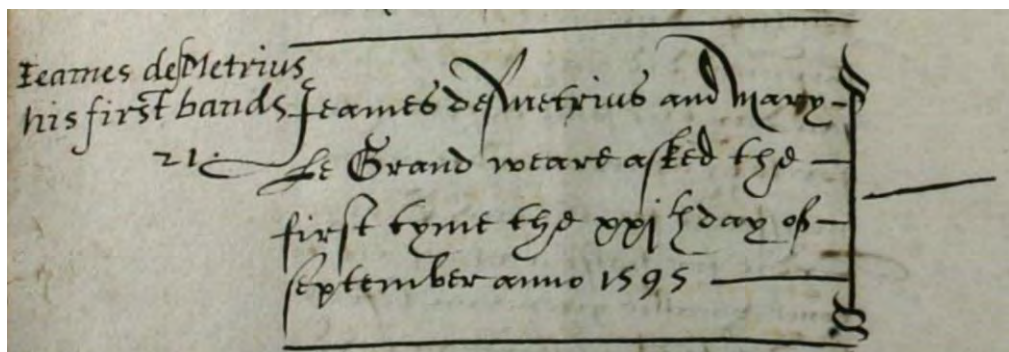 Jeames deMetrius
his first bands
21
Jeames demetrius and Mary
Le Grand weare asked the
first tyme the xxjth day of
september anno 1595